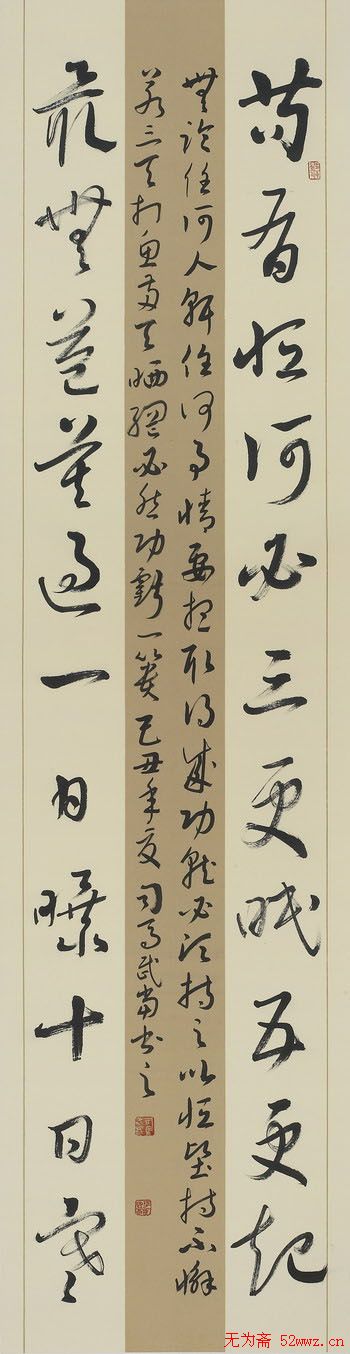 苟有恒何必三更眠五更起
無論任何人幹任何事情要想取得成功就必須持之以恒堅持不懈
若三天打魚兩天晒網必然功虧一簣己丑年夏司馬武當書之
最無益莫過一日曝十日寒
无为斋 52wwz.cn